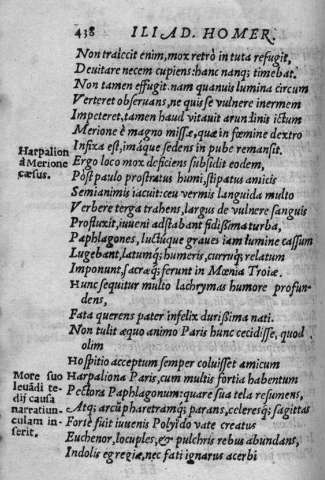 438 ILIAD. HOMER.
Non traiecit enim, mox retrò in tuta refugit,
Deuitare necem cupiens: hanc nanq; timebat.
Non tamen effugit. nam quanuis lumina circum
Verteret obseruans, ne quis se vulnere inermem
Impeteret, tamen haud vitauit arundinis ictum
Merione è magno missæ, quæ in fœmine dextro
Infixa est, imáque sedens in pube remansit.
Harpalion
à Merione
cæsus.
Ergo loco mox deficiens subsidit eodem,
Pòst paulo prostratus humi, stipatus amicis
Semianimis iacuit: ceu vermis languida multo
Verbere terga trahens, largus de vulnere sanguis
Profluxit, iuueni adstabant fidißima turba,
Paphlagones, luctúque graues iam lumine cassum
Lugebant, latumq; humeris, curruq; relatum
Imponunt, sacræq; ferunt in Mœnia Troiæ.
Hunc sequitur multo lachrymas humore profun-
dens,
Fata querens pater infelix durißima nati.
Non tulit æquo animo Paris hunc cecidisse, quod
olim
Hospitio acceptum semper coluisset amicum
More suo
leuãdi te-
dij causa
narratiun-
culam in-
serit.
Harpaliona Paris, cum multis fortia habentum
Pectora Paphlagonum: quare sua tela resumens,
Atq; arcũ pharetramq; parans, celeresq; sagittas
Fortè fuit iuuenis Polyido vate creatus
Euchenor, locuples, & pulchris rebus abundans,
Indolis egregiæ, nec fati ignarus acerbi